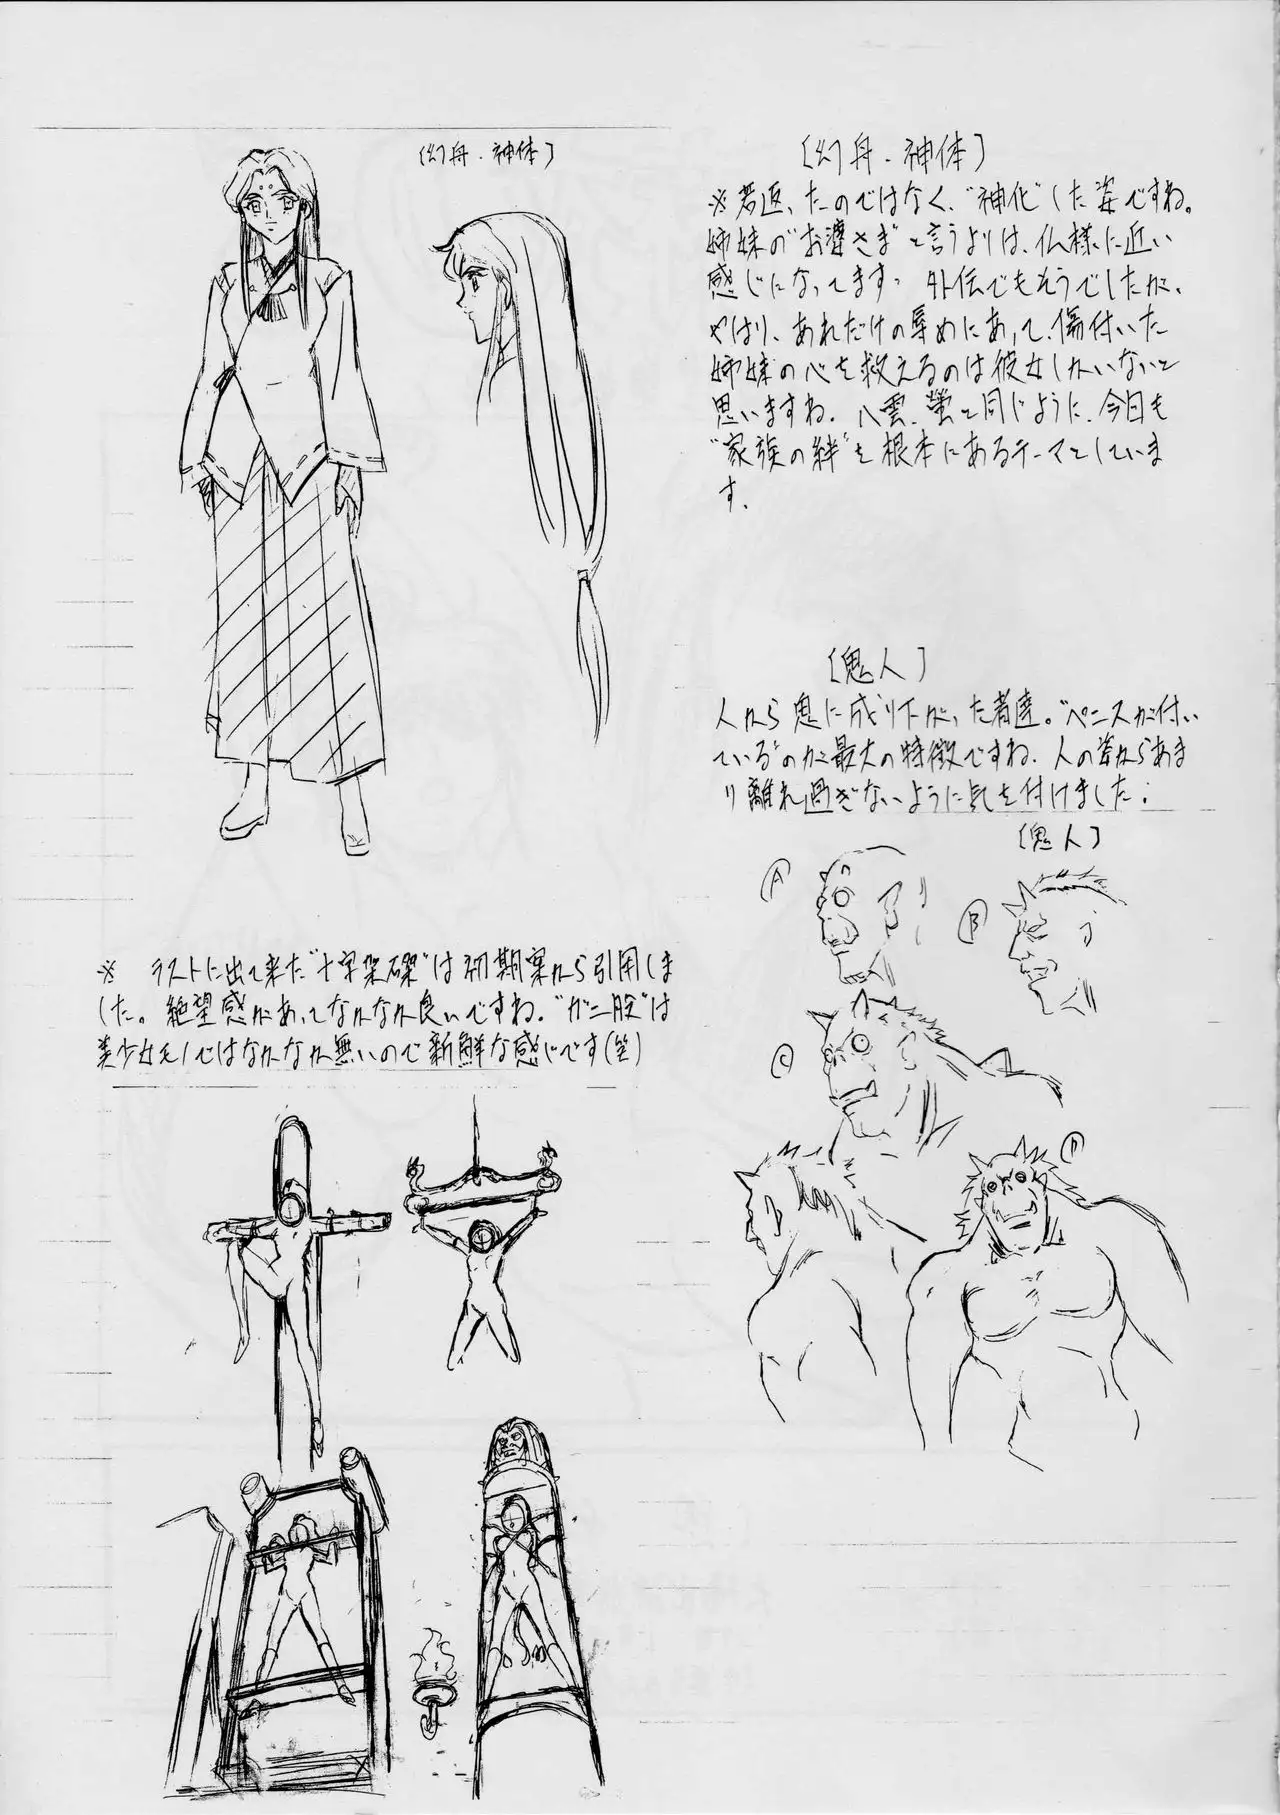 [幻舟・神体]
[幻舟・神体]
※若返ったのではなく、"神化"した姿ですね。
姉妹の"お婆さま"と言うよりは、仏様に近い
感じになってます。外伝でもそうでしたが、
やはり、あれだけの辱めにあって、傷付いた
姉妹の心を救えるのは彼女しかいないと
思いますね。八雲、螢と同じように、今回も
"家族の絆"を根本にあるテーマとしていま
す。
[鬼人]
人から鬼に成り下がった者達。"ペニスが付い
ている"のが最大の特徴ですね。人の姿からあま
り離れ過ぎないように気を付けました。
[鬼人]
A
B
C
D
※ ラストに出て来た"十字架磔"は初期案から引用しま
した。絶望感があってなかなか良いですね。"ガニ股"は
美少女モノではなかなか無いので新鮮な感じです(笑)